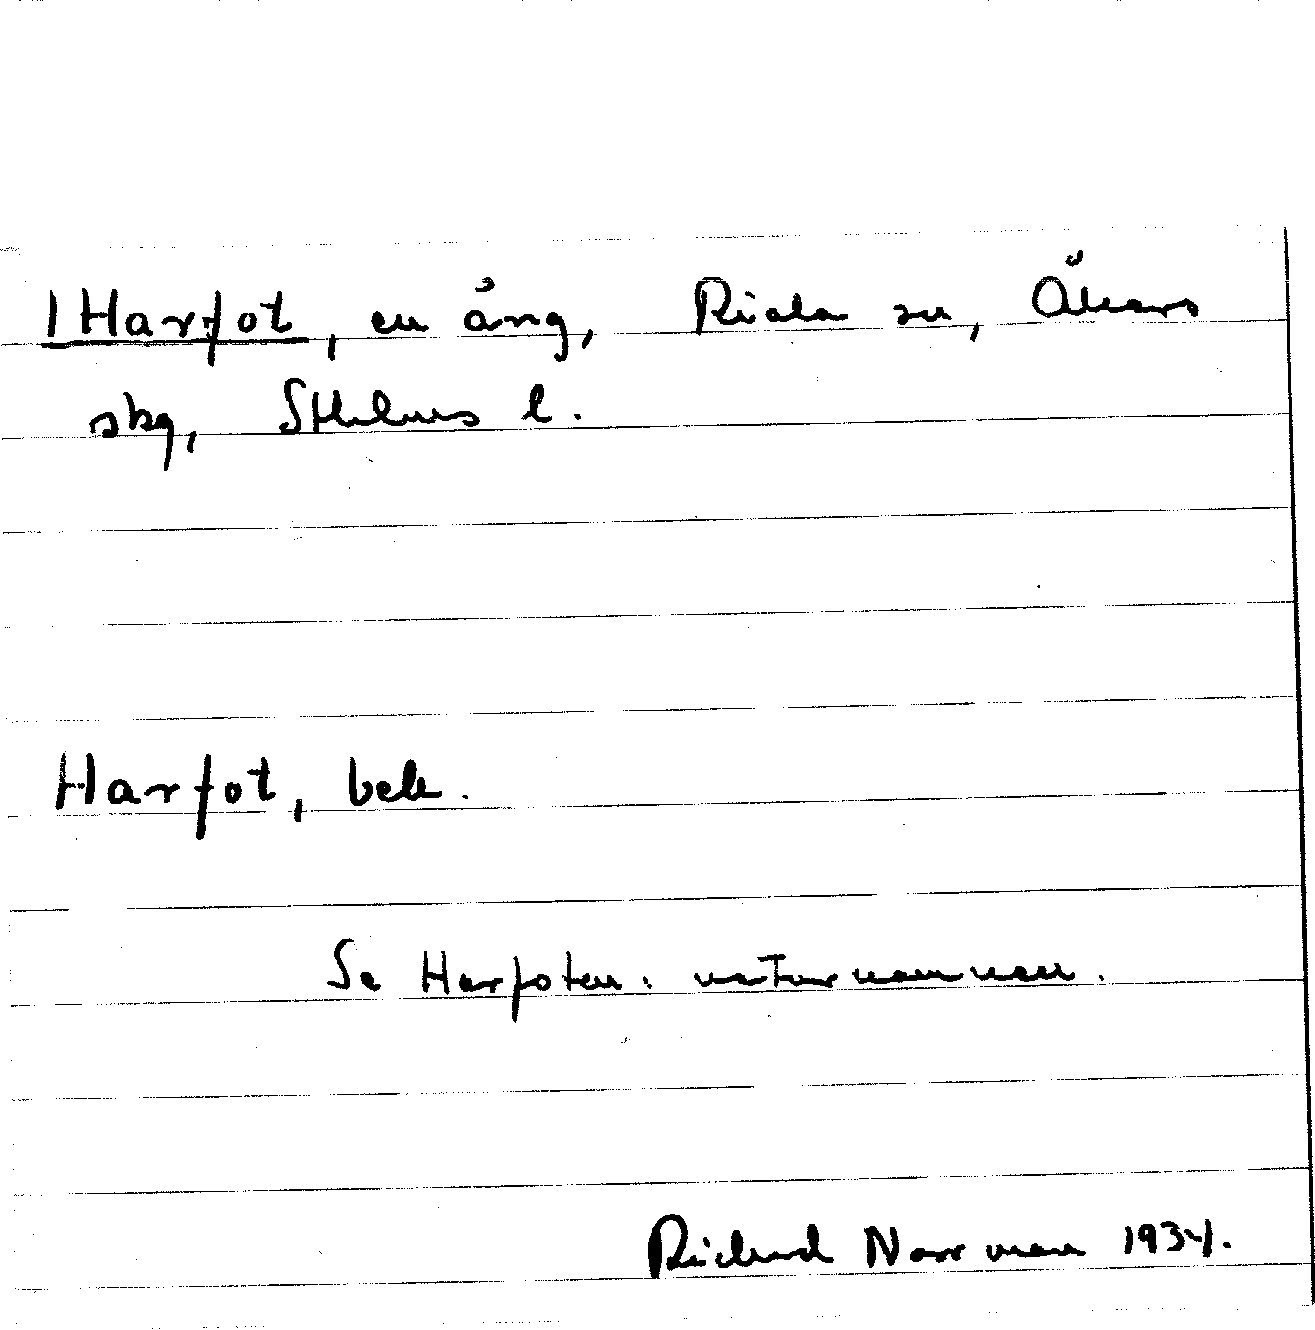 1 Harfot, en äng, Riala sn, Åkers
skg, Sthlms l.
Harfot, bek.
Se Harfoten: naturnamnen.
Richard Norrman 1934.